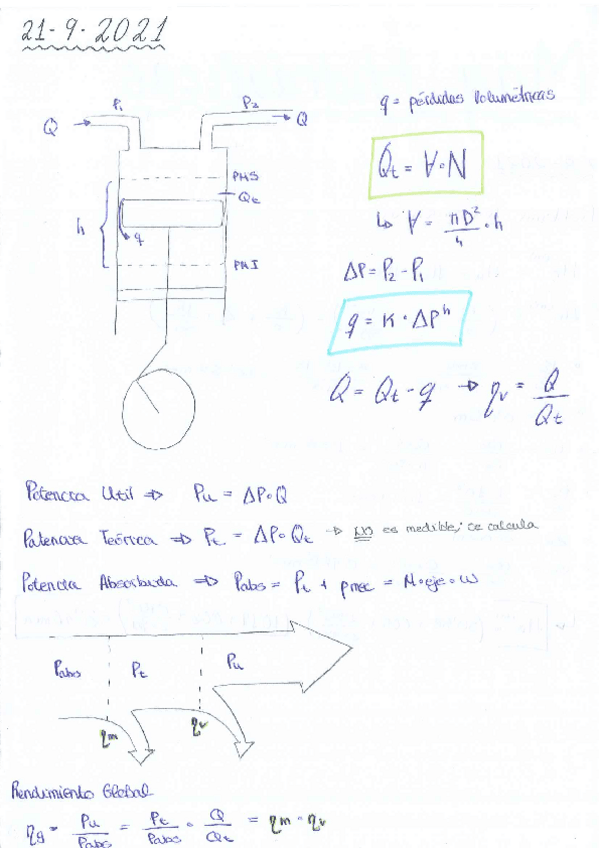 21-9-2021
P₁
P₂
q = pérdidas volumétricas
Q
Q
Qt = V·N
PMS
Qt
h
q
↳ V = πD²/4 · h
PMI
ΔP = P₂ - P₁
q = K · ΔPⁿ
Q = Qt - q → ηv = Q/Qt
Potencia Util ⇒ Pu = ΔP·Q
Potencia Teórica ⇒ Pt = ΔP·Qt → No es medible, se calcula
Potencia Absorbida ⇒ Pabs = Pt + pmec = M·eje·ω
Pabs
Pt
Pu
ηm
ηv
Rendimiento Global
ηg = Pu/Pabs = Pt/Pabs · Q/Qt = ηm · ηv